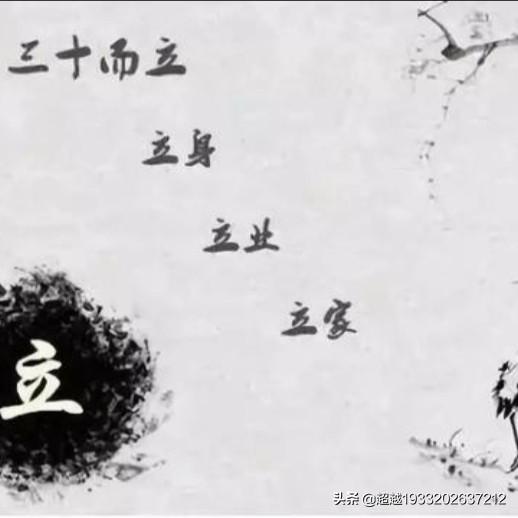 三十而立
立身
立业
立家
立
头条 @超越1933202637212